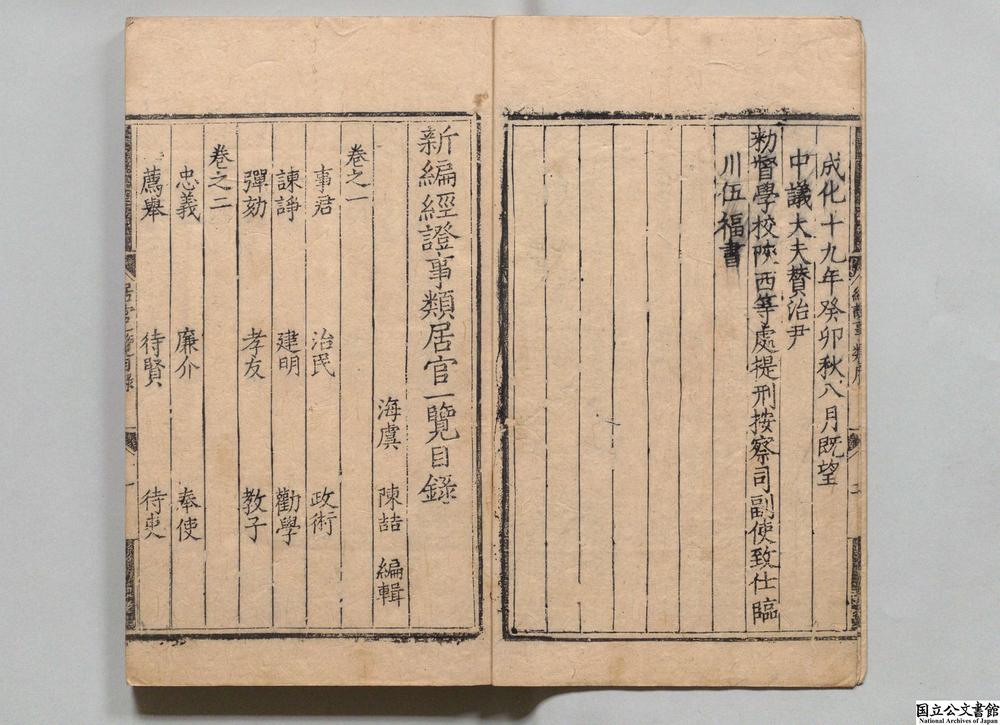 成化十九年癸卯秋八月既望
中議大夫賛治尹
勑督學校陝西等處提刑按察司副使致仕臨
川伍福書
新編經證事類居官一覽目錄
海虞 陳喆 編輯
卷之一
事君 治民 政術
諫諍 建明 勸學
彈劾 孝友 教子
卷之二
忠義 廉介 奉使
薦舉 待賢 待吏
国立公文書館
National Archives of Japan